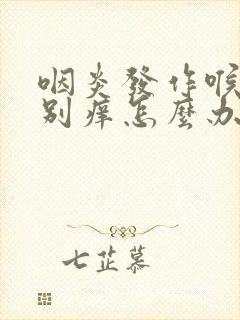 咽炎發作喉
别痒怎麼办
七芷慕